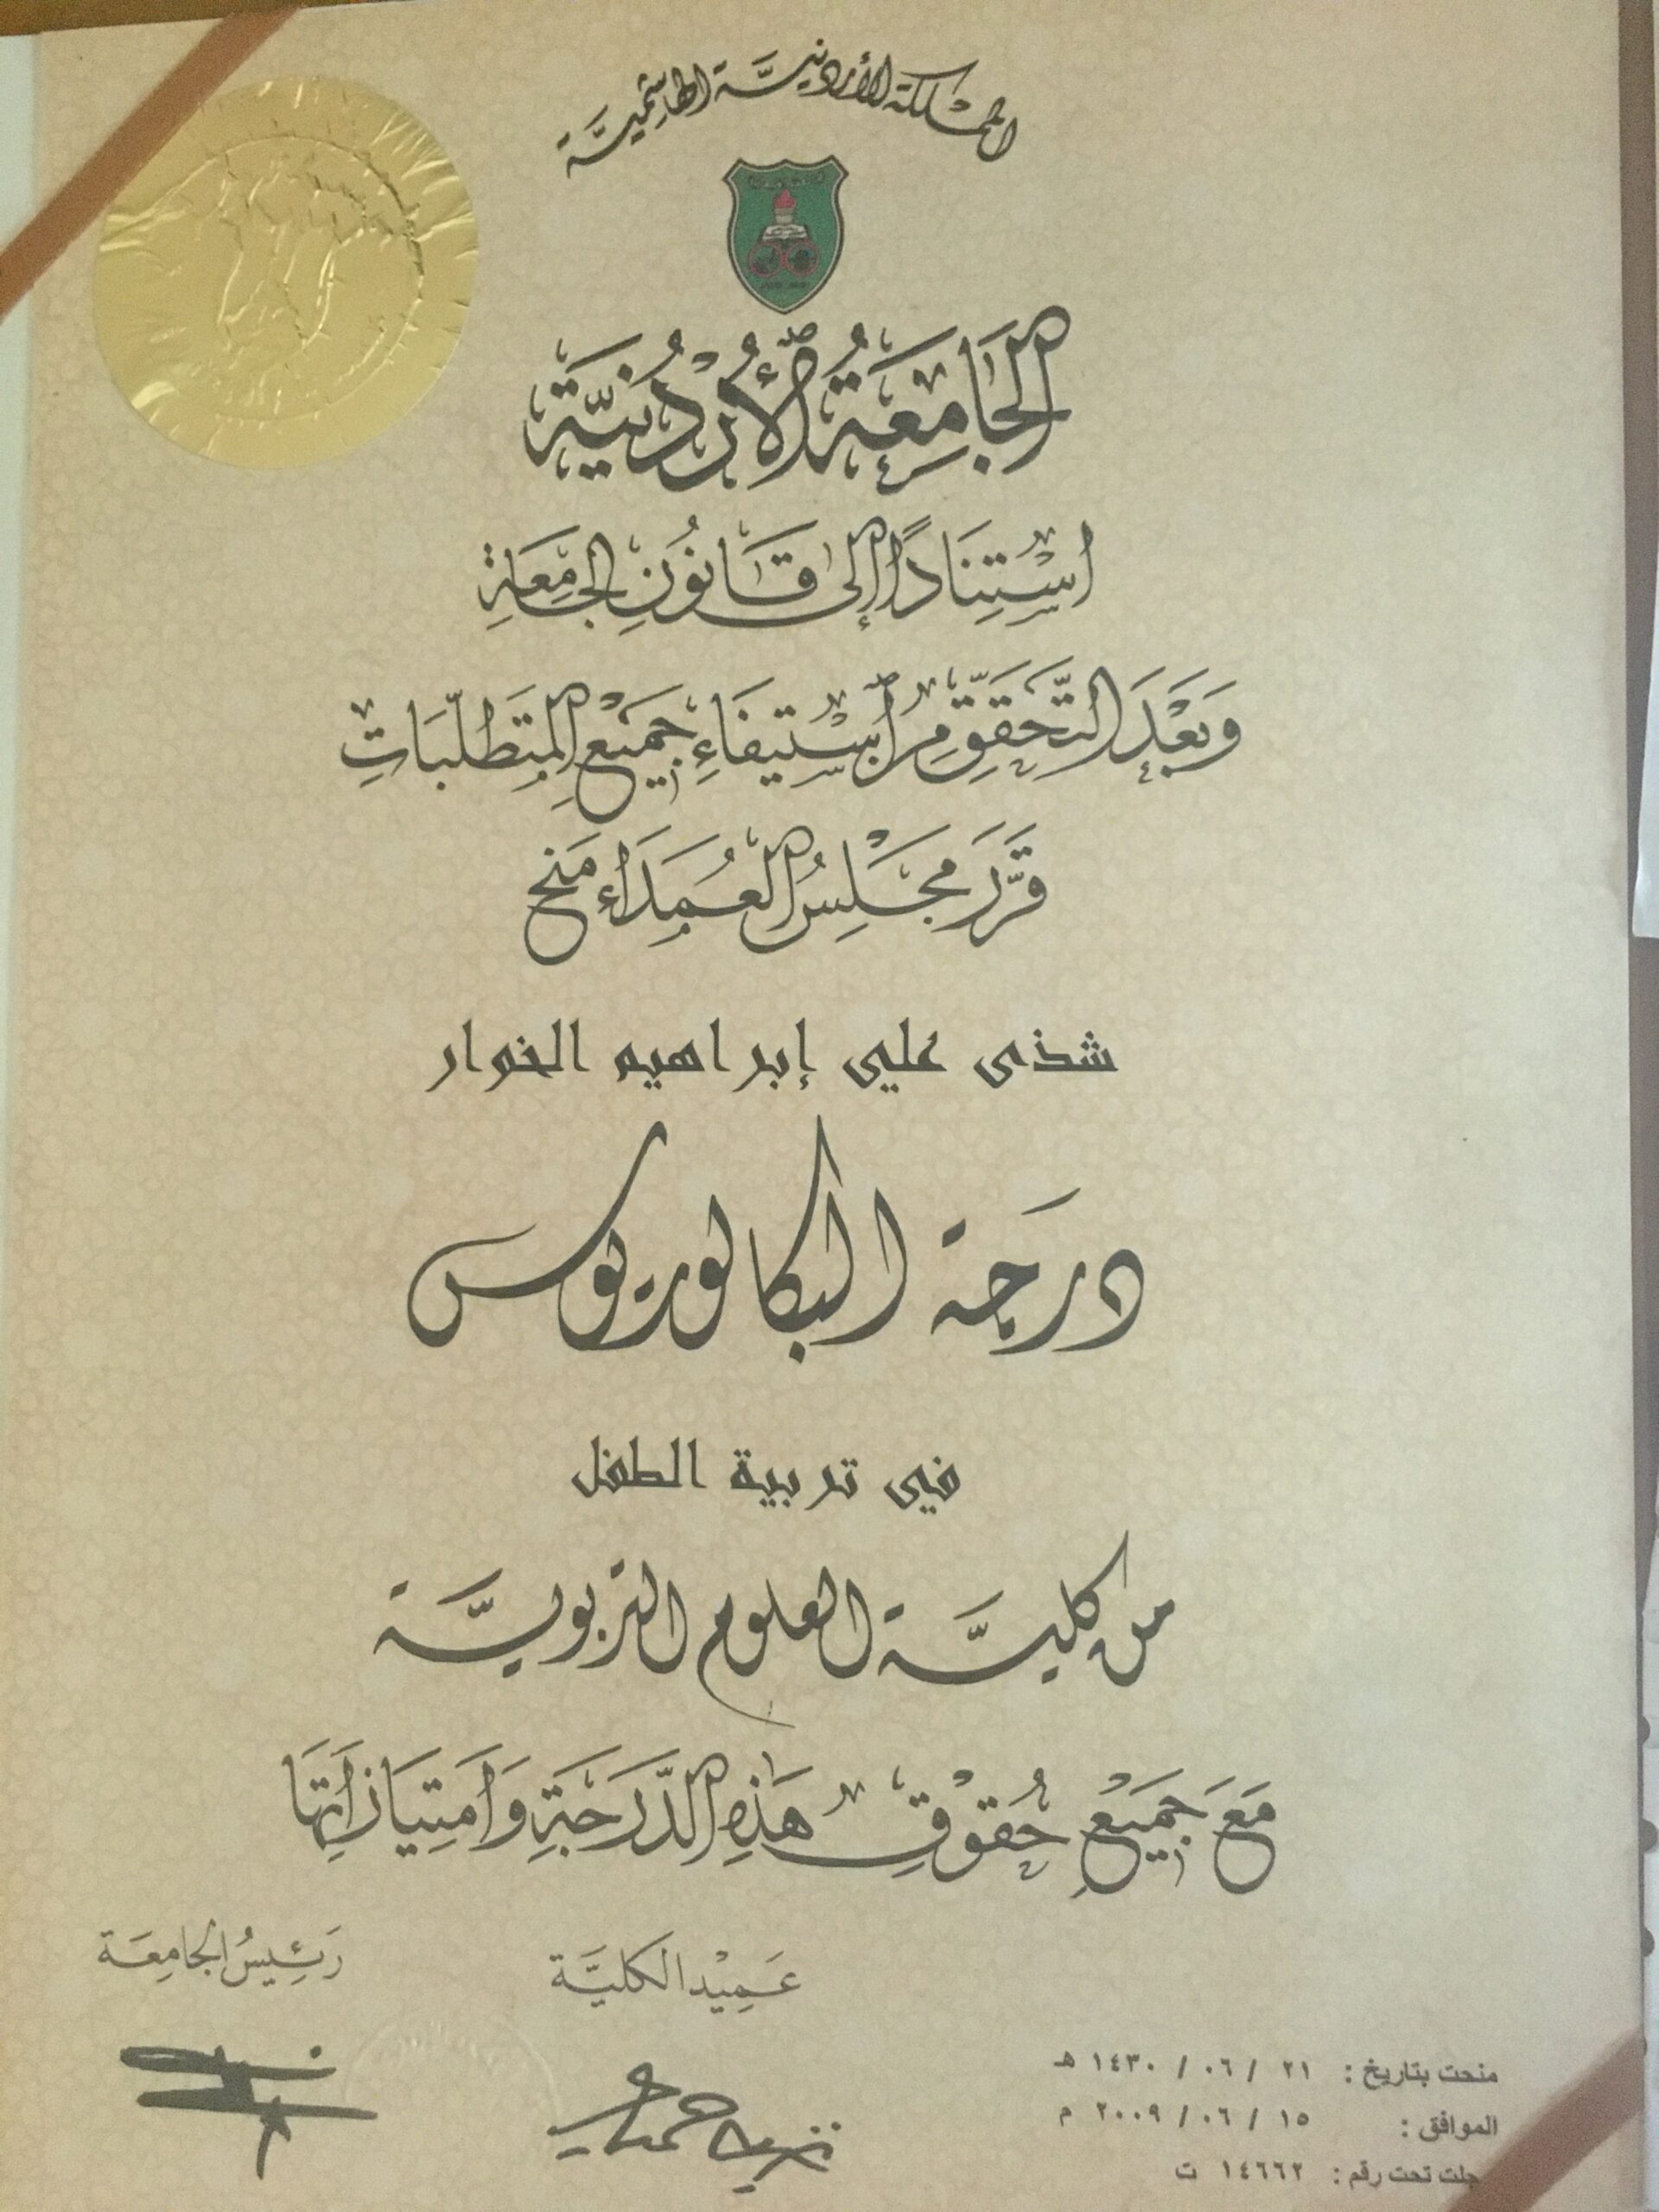 المملكة الأردنيَّة الهاشِميَّة
الجَامِعَةُ الأُرْدُنِيَّة
اسْتِنَادًا إِلى قَانُونِ الجَامِعَةِ
وَبَعْدَ التَّحَقُّقِ مِن اسْتِيفَاءِ جَمِيْعِ المُتَطَلَّبَاتِ
قَرَّرَ مَجْلِسُ العُمَدَاءِ مَنحَ
شذى علي إبراهيم الخوار
درَجة البكالوريوس
في تربية الطفل
من كليَّة العلوم التربويَّة
مَعَ جَمِيْعِ حُقوْقِ هَذِهِ الدَّرَجَةِ وَامتِيَازَاتِهَا
رَئِيسُ الجامِعَة
عَمِيْد الكليَّة
منحت بتاريخ : ٢١ / ٠٦ / ١٤٣٠ هـ
الموافق : ١٥ / ٠٦ / ٢٠٠٩ م
جلت تحت رقم : ١٤٦٦٢ ت